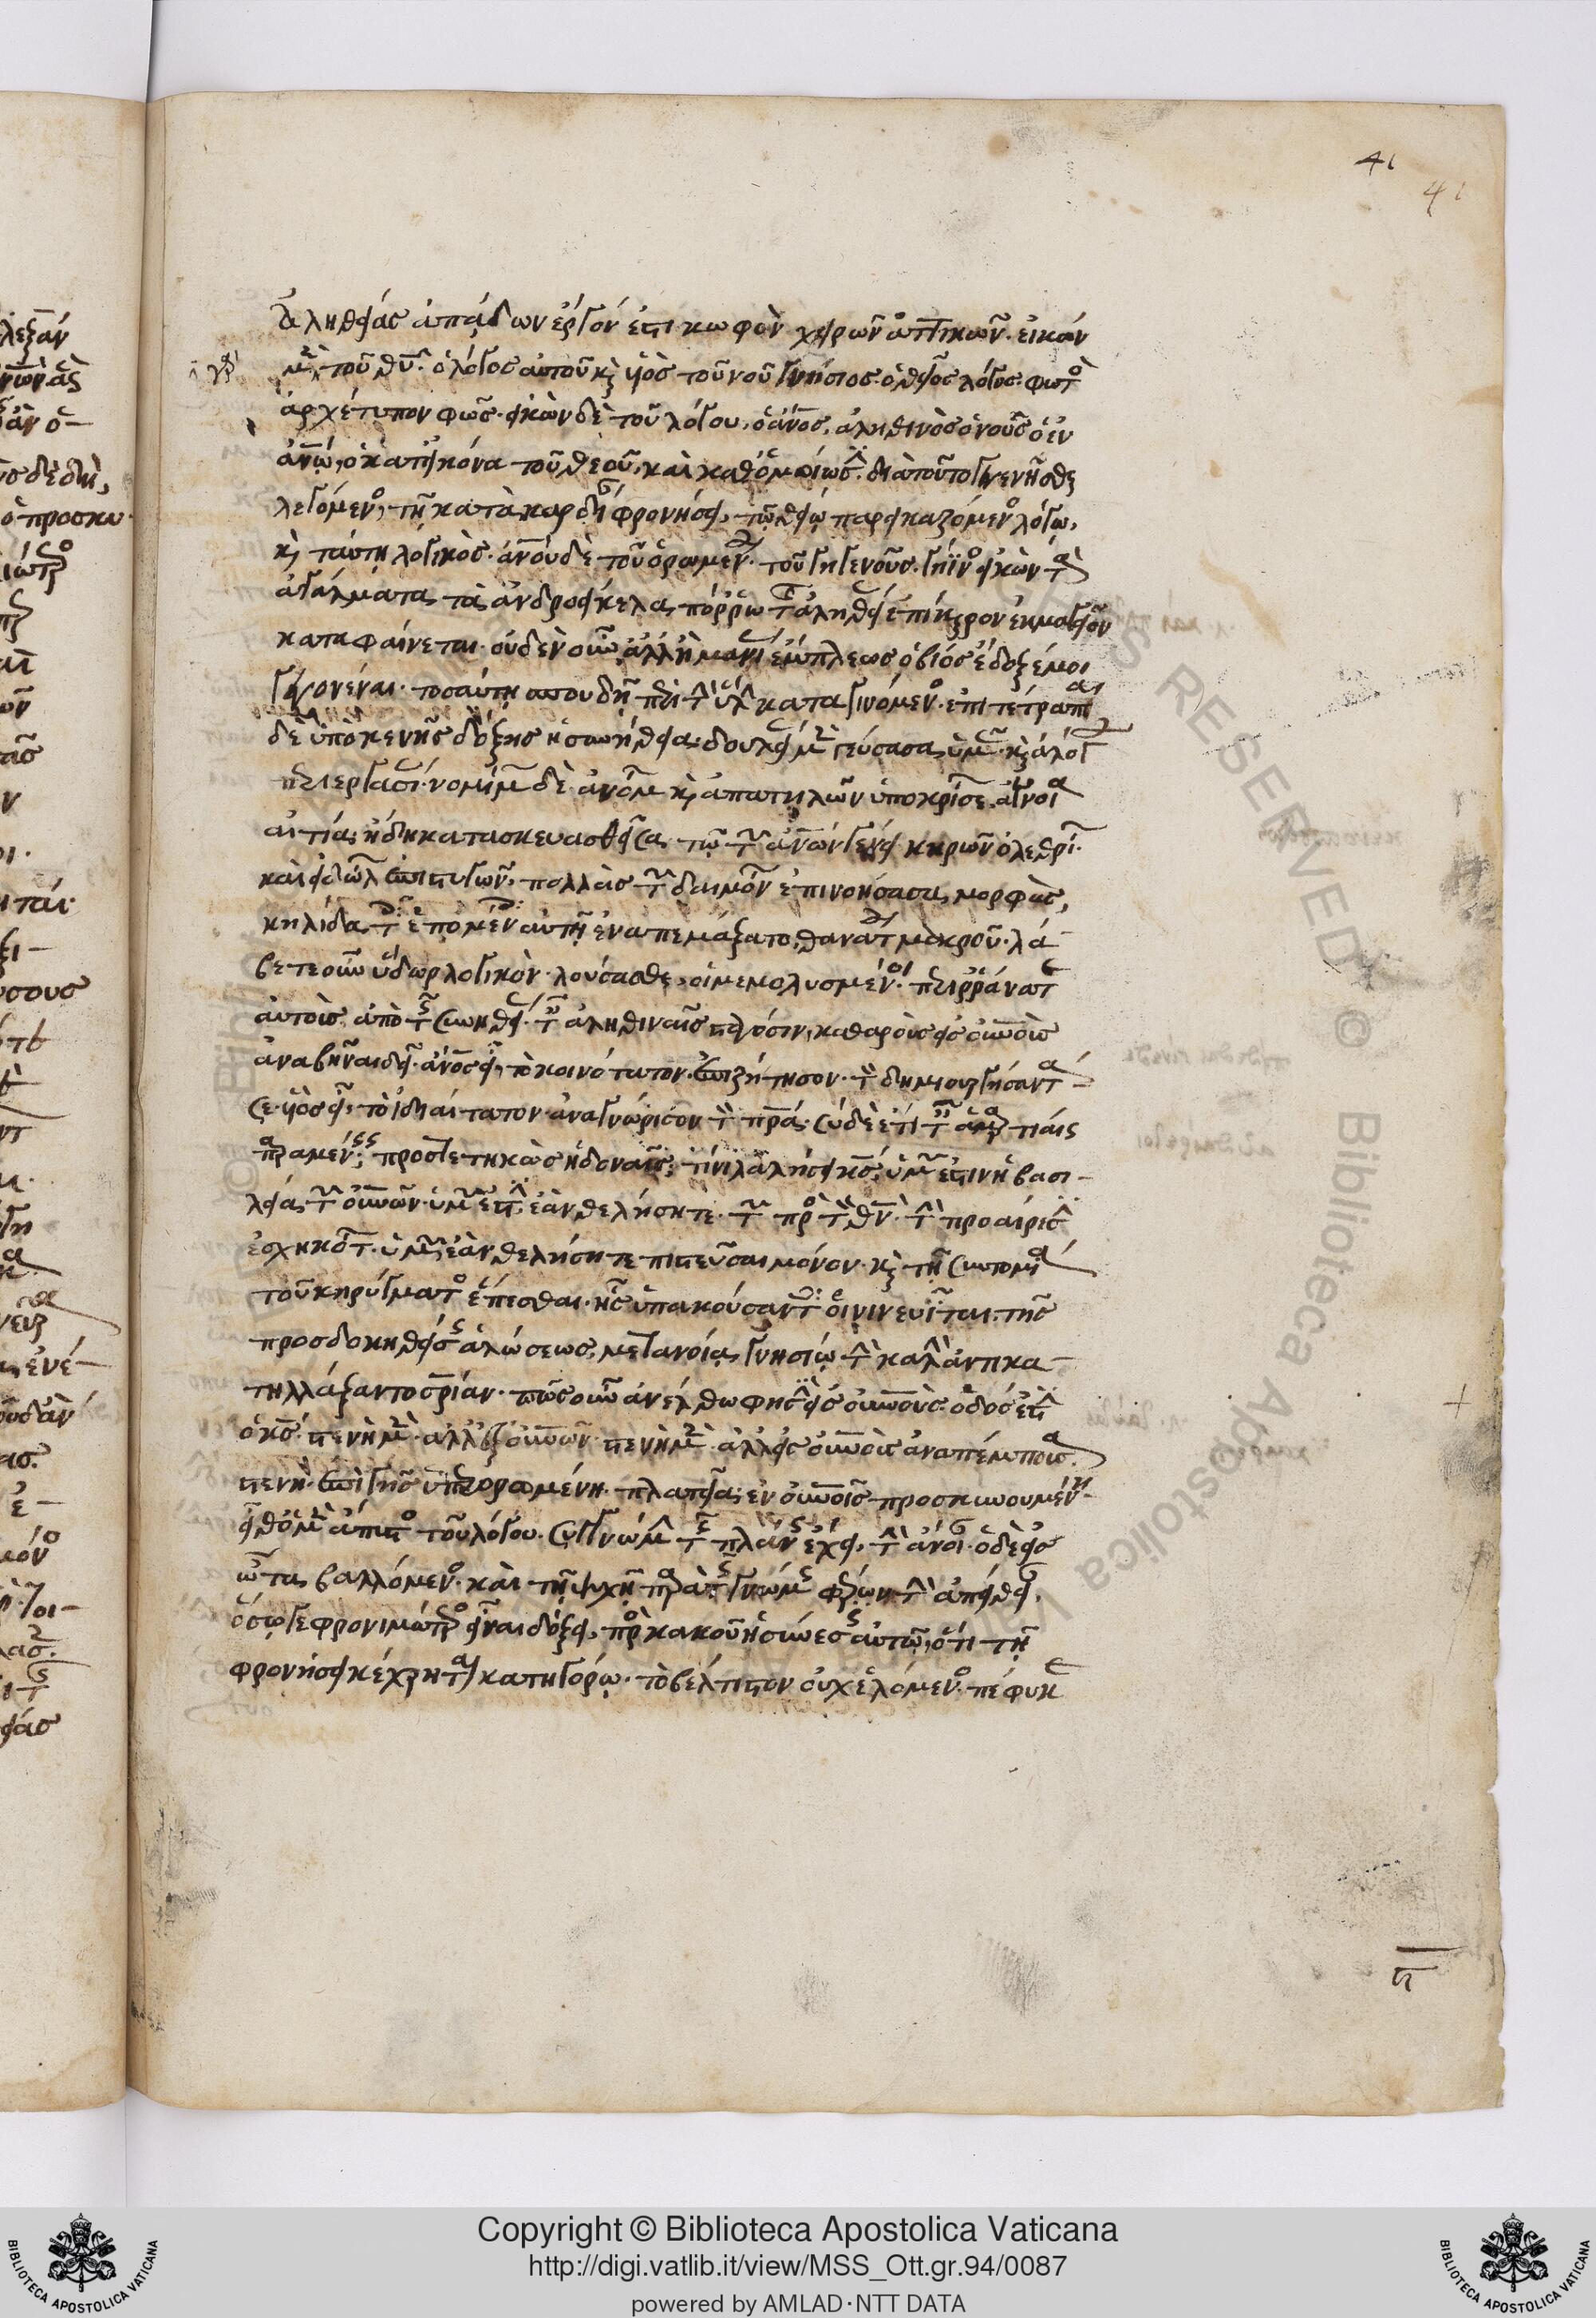 ἀληθείας ἀπάδων ἔργον ἐστὶ κωφὸν χειρῶν ἀττικῶν. εἰκὼν
μὲν τοῦ θυ. ὁ λόγος αὐτοῦ κ(αὶ) υἱὸς τοῦ νοῦ γνήσιος. ὁ θεῖος λόγος. φωτὸς
ἀρχέτυπον φῶς. εἰκὼν δὲ τοῦ λόγου, ὁ ανος. ἀληθινὸς ὁ νοῦς ὁ ἐν
ανω, ὁ κατ' εἰκόνα τοῦ θεοῦ, καὶ καθ' ὁμοίωσιν. διὰ τοῦτο γεγενῆσθαι
λεγόμενος, τῇ κατὰ καρδίαν φρονήσει, τῷ θείῳ παρεικαζόμενος λόγω,
κ(αὶ) ταύτῃ λογικὸς. ανου δὲ τοῦ ὁρωμένου. τοῦ γηγενοῦς. γήϊνος εἰκὼν τὰ
ἀγάλματα τὰ ἀνδροείκελα, πόρρω τῆς ἀληθείας ἐπίκαιρον ἐκμαγεῖον
καταφαίνεται. οὐδὲν οὖν ἀλλ' ἢ μανίας ἔμπλεως ὁ βίος ἔδοξέ μοι
γεγονέναι. τοσαύτῃ σπουδῇ περὶ τὴν ὕλην καταγινόμενος. ἐπιτέτραπται
δὲ ὑπὸ κενῆς δόξης ἡ συνήθεια. δουλείας μὲν γεύσασα ὑμᾶς. κ(αὶ) ἀλόγου
περιεργασίας. νομίμων δὲ ἀνόμων κ(αὶ) ἀπατηλῶν ὑποκρίσεων ἄγνοια
αἰτία, ἡ δὴ κατασκευασθεῖσα τῷ τῶν ανων γένει κηρῶν ὀλεθρίων.
καὶ εἰδώλων ἐπιστυγῶν, πολλὰς τῶν δαιμόνων ἐπινοήσασα μορφὰς,
κηλίδα τοῖς ἑπομένοις αὐτῇ ἐναπεμάξατο, θανάτου μακροῦ. λά
βετε οὖν ὕδωρ λογικὸν. λούσασθε, οἱ μεμολυσμένοι. περιρράνατε
αὐτοὺς ἀπὸ τῆς συνηθείας. ταῖς ἀληθιναῖς σταγόσιν, καθαροὺς εἰς ουνοὺς
ἀναβῆναι δεῖ. ανος εἶ, τὸ κοινότατον. ἐπιζήτησον. τὸν δημιουργήσαντά
σε. υἱὸς εἶ, τὸ ἰδιαίτατον. ἀναγνώρισον τὸν πρα. σὺ δὲ ἔτι ταῖς ἁμαρτίαις
παραμένεις; προστετηκὼς ἡδοναῖς; τίνι λαλήσει κς, ὑμῶν ἐστιν ἡ βασι-
λεία τῶν ουνων. ὑμῶν ἐστιν, ἐὰν θελήσητε. τῶν πρὸς τὸν θν. τὴν προαίρεσιν
ἐσχηκότων. ὑμῶν ἐὰν θελήσητε πιστεῦσαι μόνον. κ(αὶ) τῇ συντομίᾳ
τοῦ κηρύγματος ἕπεσθαι. ἧς ὑπακούσαντες οἱ νινευῖται. τῆς
προσδοκηθείσης ἁλώσεως, μετανοίᾳ γνησίῳ τὴν καλὴν ἀντικα-
τηλλάξαντο σρίαν. πῶς οὖν ἀνέλθω φησὶν εἰς ουνους. ὁδὸς ἐστιν
ὁ κς. στενὴ μὲν. ἀλλ' ἐξ ουνων. στενὴ μὲν. ἀλλ' εἰς ουνοὺς ἀναπέμπουσα.
στενὴ. ἐπὶ γῆς ὑπερορωμένη. πλατεῖα, ἐν ουνοῖς προσκυνουμένη.
εἶθ' ὁ μὲν ἄπιστος τοῦ λόγου. συγγνώμην τῆς πλάνης ἔχει, τὴν ἄγνοιαν. ὁ δὲ εἰς
ὦτα βαλλόμενος. καὶ τῇ ψυχῇ παρὰ τῆς γνώμης φέρων τὴν ἀπείθειαν,
ὅσῳ γε φρονιμώτερος εἶναι δόξει, πρὸς κακοῦ ἡ σύνεσις αὐτῷ, ὅτι τῇ
φρονήσει κέχρηται κατηγόρῳ. τὸ βέλτιστον οὐχ ἑλόμενος. πέφυκε
41
41
Copyright © Biblioteca Apostolica Vaticana
http://digi.vatlib.it/view/MSS_Ott.gr.94/0087
powered by AMLAD·NTT DATA
BIBLIOTECA APOSTOLICA VATICANA
BIBLIOTECA APOSTOLICA VATICANA